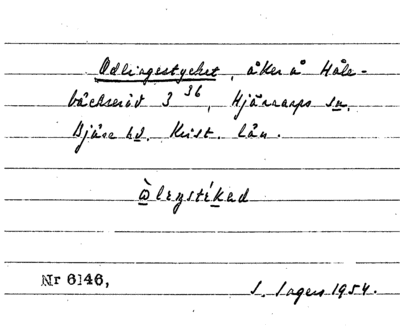 Odlingsstycket, åker å Håle-
bäckseröd 3 36, Hjärnarps sn.
Bjäre hd. Krist. län.
Nr 6146,
S. Ingers 1954.